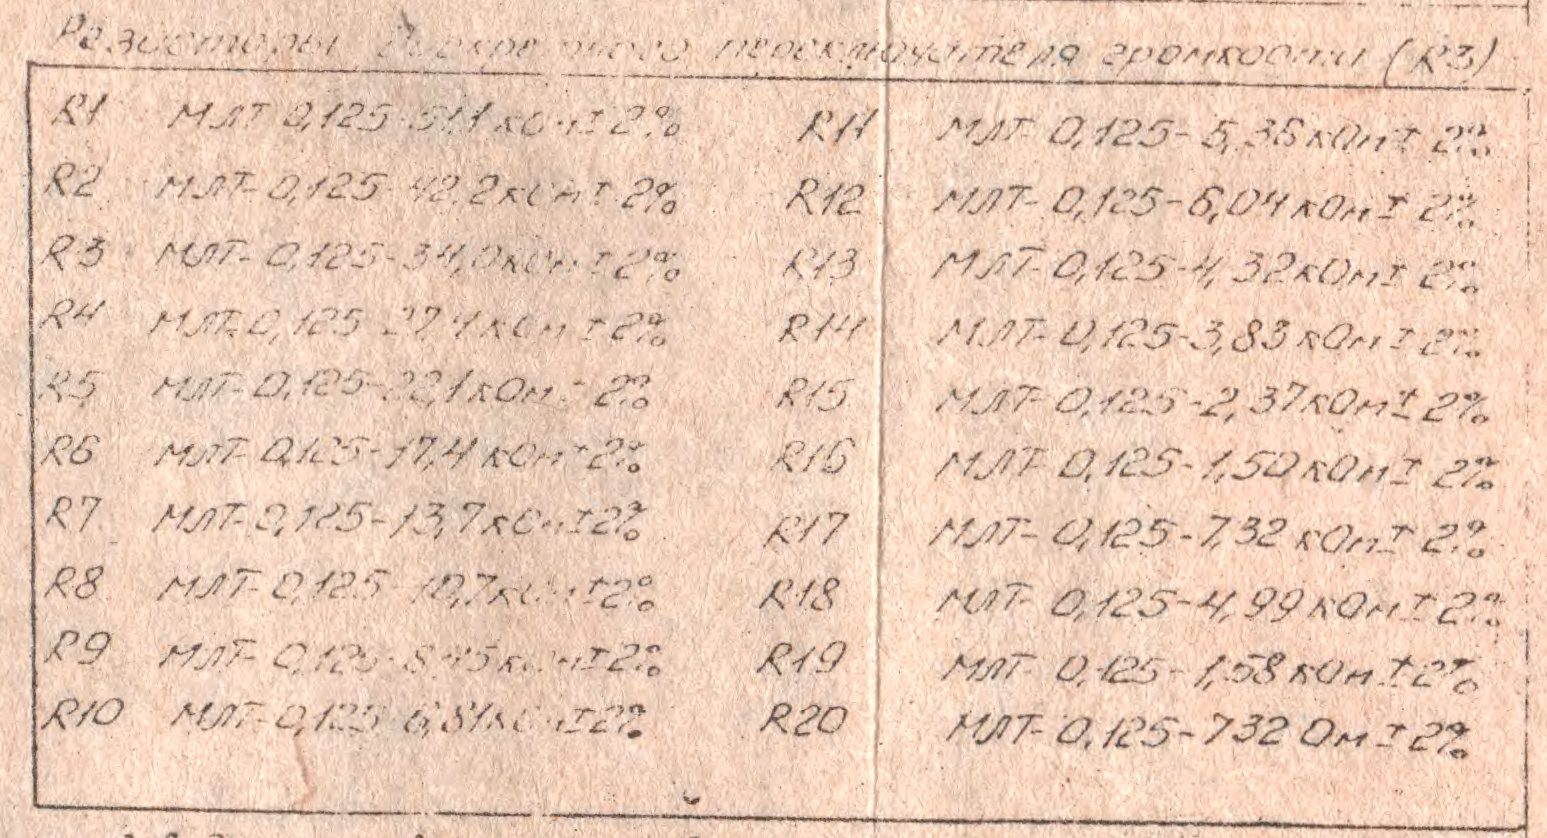 Резисторы дискретного переключателя громкости (R3)
R1 МЛТ-0,125-51,1 кОм ± 2% R11 МЛТ-0,125-5,36 кОм ± 2%
R2 МЛТ-0,125-42,2 кОм ± 2% R12 МЛТ-0,125-6,04 кОм ± 2%
R3 МЛТ-0,125-34,0 кОм ± 2% R13 МЛТ-0,125-4,32 кОм ± 2%
R4 МЛТ-0,125-27,4 кОм ± 2% R14 МЛТ-0,125-3,83 кОм ± 2%
R5 МЛТ-0,125-22,1 кОм ± 2% R15 МЛТ-0,125-2,37 кОм ± 2%
R6 МЛТ-0,125-17,4 кОм ± 2% R16 МЛТ-0,125-1,50 кОм ± 2%
R7 МЛТ-0,125-13,7 кОм ± 2% R17 МЛТ-0,125-7,32 кОм ± 2%
R8 МЛТ-0,125-10,7 кОм ± 2% R18 МЛТ-0,125-4,99 кОм ± 2%
R9 МЛТ-0,125-8,45 кОм ± 2% R19 МЛТ-0,125-1,58 кОм ± 2%
R10 МЛТ-0,125-6,81 кОм ± 2% R20 МЛТ-0,125-732 Ом ± 2%